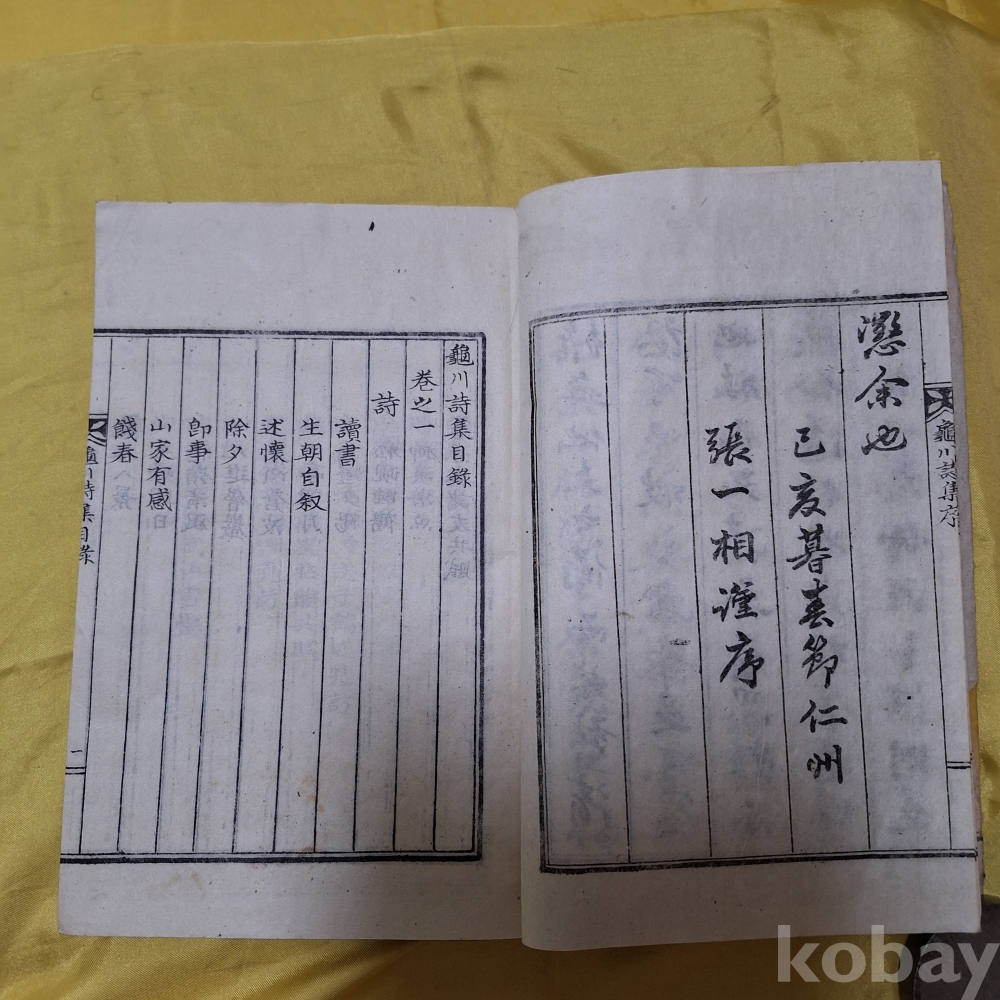 懲余也
己亥暮春節仁州
張一相謹序
龜川詩集序
龜川詩集目錄
卷之一
詩
讀書
生朝自叙
述懷
除夕
卽事
山家有感
餞春
龜川詩集目錄
一
kobay